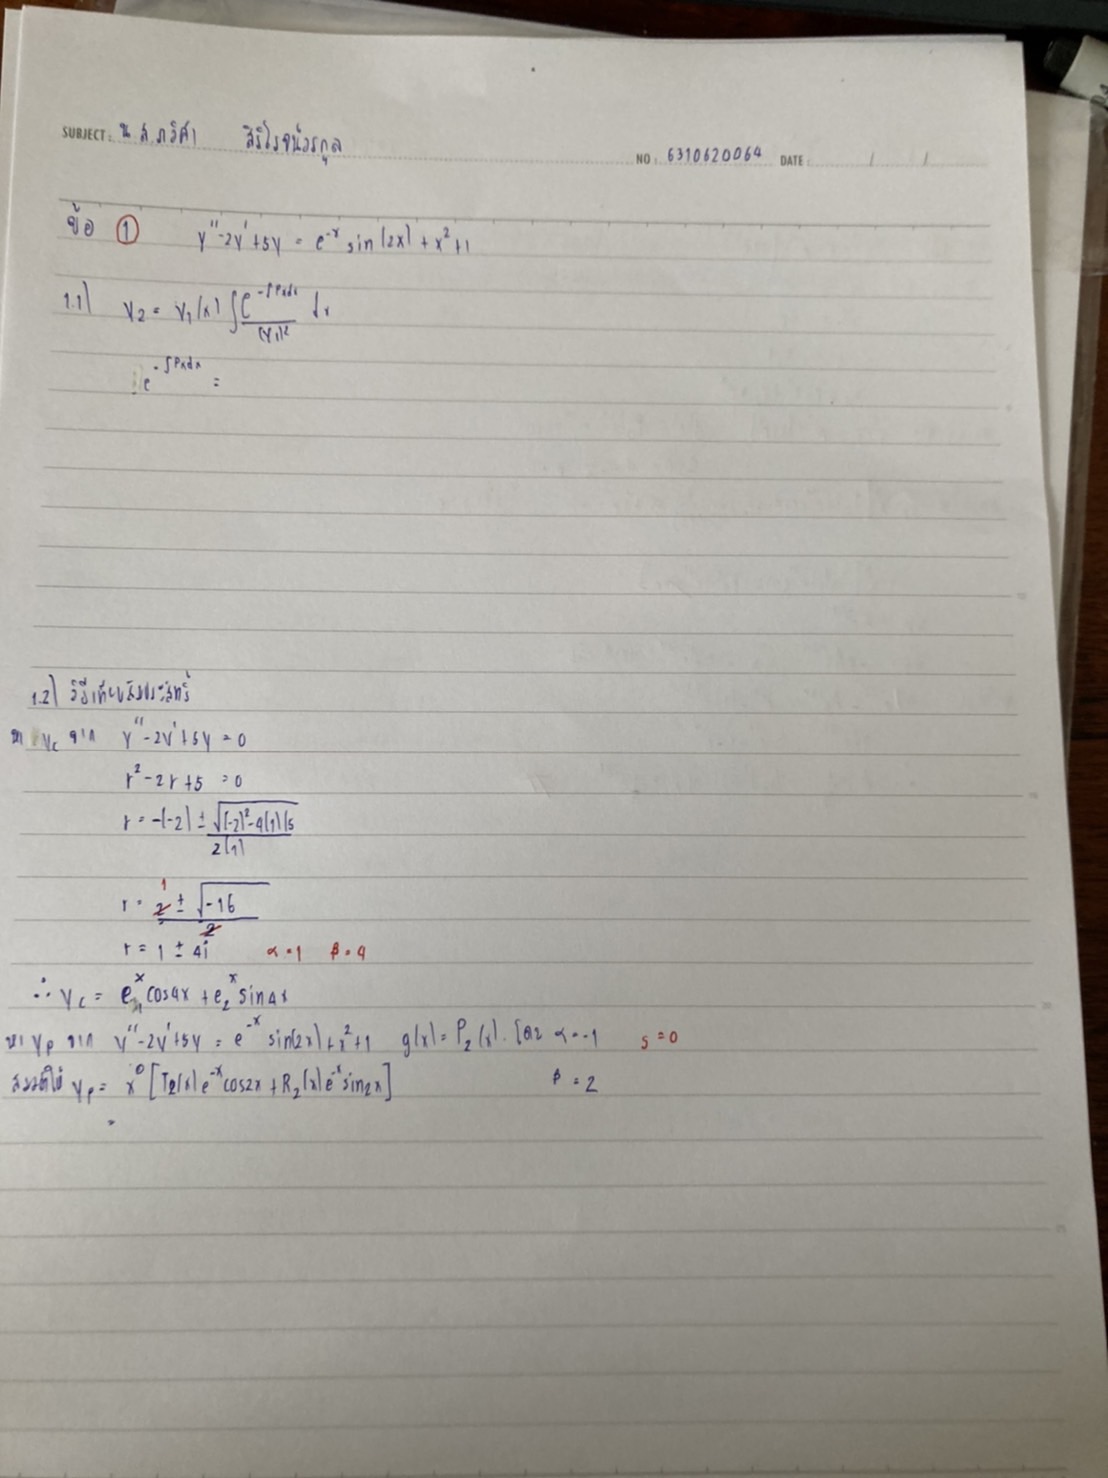 SUBJECT: น.ส.ภวิศา สิริโรจน์วรกุล
NO: 6310620064 DATE: / /
ข้อ ① y''-2y'+5y = e^-x sin(2x) + x²+1
1.1) y₂ = y₁(x) ∫ e^-∫Pxdx / (y₁)² dx
e^-∫Pxdx =
1.2) วิธีเทียบสัมประสิทธิ์
หา yc จาก y''-2y'+5y = 0
r²-2r+5 = 0
r = -(-2) ± √(-2)²-4(1)(5 / 2(1)
1
r = 2 ± √-16 / 2
r = 1 ± 4i α=1 β=4
∴ yc = e₁^x cos4x + e₂^x sin4x
หา yp จาก y''-2y'+5y = e^-x sin(2x)+x²+1 g(x) = P₂(x). โดย α=-1 s=0
สมมติให้ yp = x⁰ [T₂(x)e^-x cos2x + R₂(x)e^-x sin2x] β = 2
=